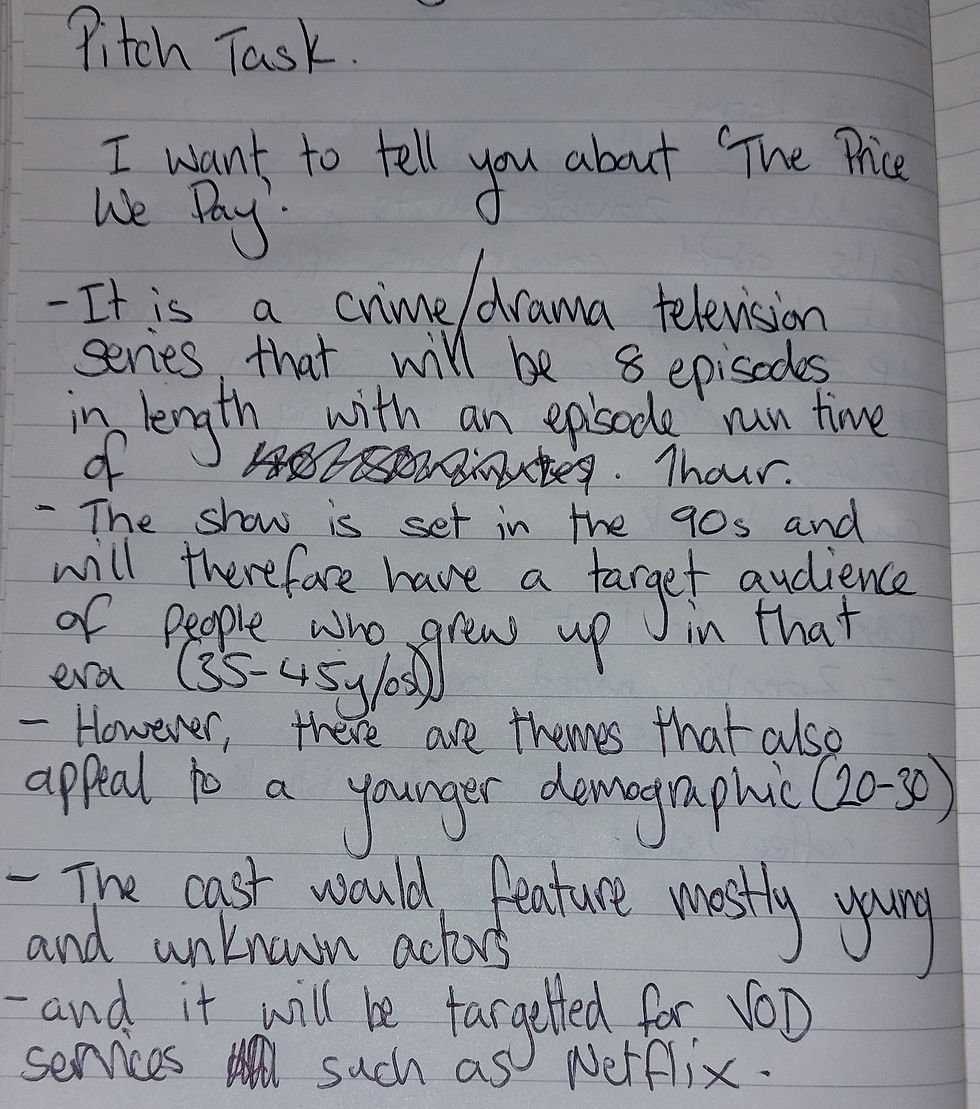 Pitch Task.
I want to tell you about 'The Price
We Pay'.
- It is a crime/drama television
series, that will be 8 episodes
in length with an episode run time
of . 1hour.
- The show is set in the 90s and
will therefore have a target audience
of people who grew up in that
era (35-45y/os)
- However, there are themes that also
appeal to a younger demographic (20-30)
- The cast would feature mostly young
and unknown actors
- and it will be targetted for VOD
services such as Netflix.